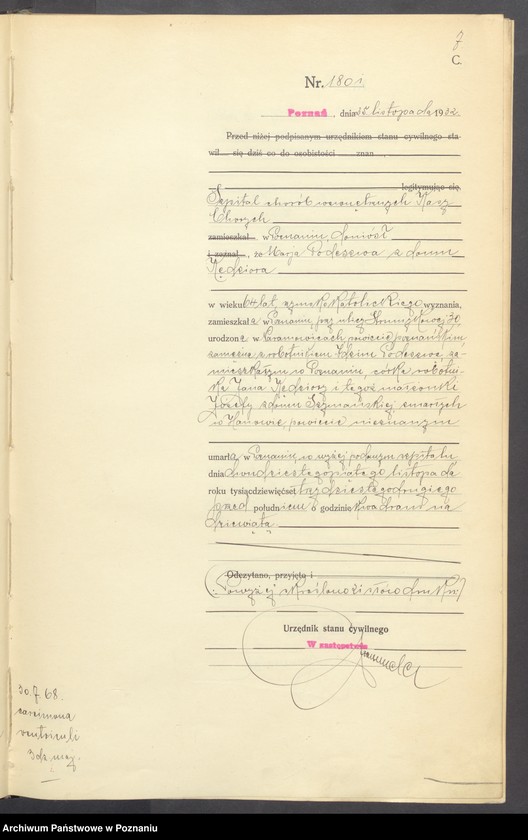 7
C.
Nr. 1801
Poznań, dnia 25 listopada 1932.
Przed niżej podpisanym urzędnikiem stanu cywilnego sta-
wił się dziś co do osobistości znan
legitymując się,
Szpital chorób wewnętrznych Kasy
Chorych
zamieszkał w Poznaniu, doniósł
i zeznał, że Marja Podeszwa z domu
Kędziora
w wieku 64 lat, wyznania, katolickiego
zamieszkała w Poznaniu, przy ulicy 30
urodzona w powiecie poznańskim
zamężna z robotnikiem Podeszwą, za-
mieszkałym w Poznaniu, córka robotni-
ka Jana Kędziory i tegoż małżonki
Józefy z domu Szymańskiej zmarłych
w powiecie nieznanym
umarła w Poznaniu, w wyżej podanym szpitalu
dnia dwudziestego piątego listopada
roku tysiąc dziewięćset trzydziestego drugiego
przed południem o godzinie kwadrans na
dziewiątą
Odczytano, przyjęto i
(Powyżej skreślono słów druku)
Urzędnik stanu cywilnego
W zastępstwie
30.7.68.
carcinoma
ventriculi
Archiwum Państwowe w Poznaniu